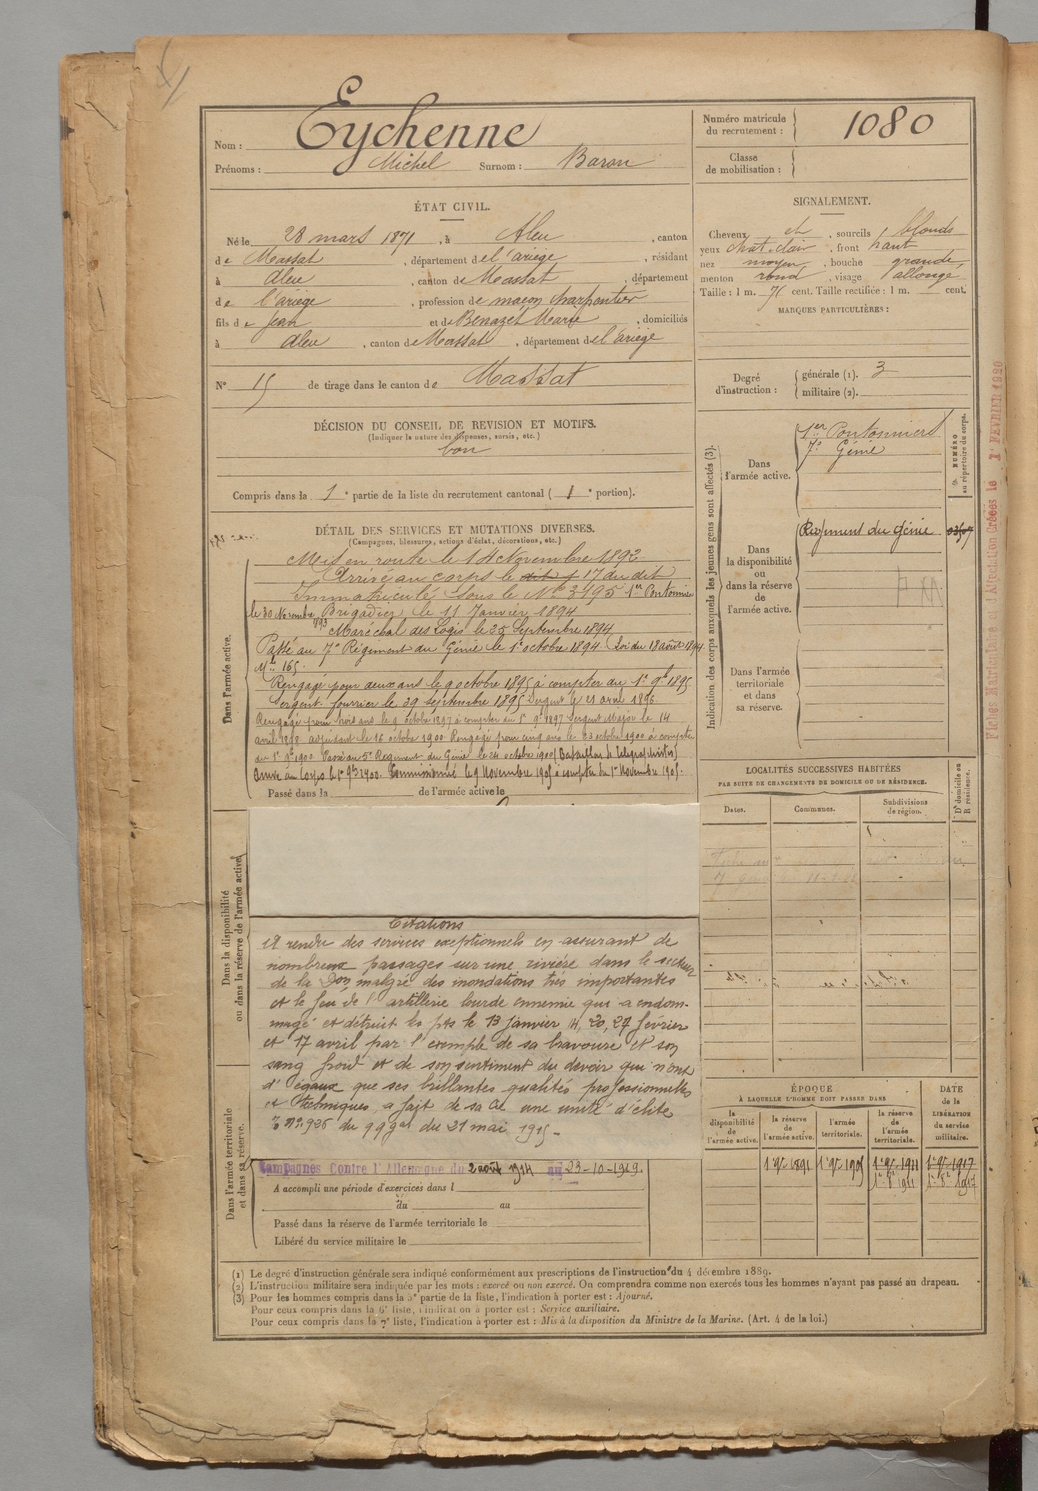 Nom : Eychenne
Prénoms : Michel Surnom : Baron
Numéro matricule
du recrutement : 1080
Classe
de mobilisation :
ÉTAT CIVIL.
Né le 28 mars 1871, à Aleu, canton
de Massat, département de l'ariège, résidant
à Aleu, canton de Massat, département
de l'ariège, profession de maçon charpentier
fils de Jean et de Benazet Marie, domiciliés
à Aleu, canton de Massat, département de l'ariège
N° 15 de tirage dans le canton de Massat
SIGNALEMENT.
Cheveux et, sourcils blonds
yeux chat. clair, front haut
nez moyen, bouche grande,
menton rond, visage allongé
Taille : 1 m. 71 cent. Taille rectifiée : 1 m. — cent.
MARQUES PARTICULIÈRES :
Degré
d'instruction :
générale (1). 3
militaire (2).
DÉCISION DU CONSEIL DE REVISION ET MOTIFS.
(Indiquer la nature des dispenses, sursis, etc.)
bon
Compris dans la 1e partie de la liste du recrutement cantonal ( 1e portion).
DÉTAIL DES SERVICES ET MUTATIONS DIVERSES.
(Campagnes, blessures, actions d'éclat, décorations, etc.)
Dans l'armée active.
Mis en route le 14 Novembre 1892
Arrivé au corps le 17 du dit
Immatriculé sous le N° 3195 1er Pontonnier
le 30 Novembre 1893 Brigadier le 11 Janvier 1894
Maréchal des Logis le 25 Septembre 1894
Passé au 7e Régiment du Génie le 1er octobre 1894 (Loi du 18 août 1894
Mle 165.
Rengagé pour deux ans le 9 octobre 1895 à compter du 1er 9bre 1895
Sergent fourrier le 29 septembre 1895 Sergent le 21 avril 1896
Rengagé pour trois ans le 9 octobre 1897 à compter du 1er 9bre 1897 Sergent Major le 14
avril 1898 adjudant le 16 octobre 1900 Rengagé pour cinq ans le 23 octobre 1900 à compter
du 1er 9bre 1900 Passé au 5e Régiment du Génie le 24 octobre 1900 (Bataillon de Télégraphistes)
Arrivé au Corps le 1er 9bre 1900. Commissionné le 9 Novembre 1905 à compter du 1er Novembre 1905.
Passé dans la de l'armée active le
Indication des corps auxquels les jeunes gens sont affectés (3).
Dans
l'armée active.
1er Pontonniers
7e Génie
NUMÉRO
au répertoire du corps.
Dans
la disponibilité
ou
dans la réserve
de
l'armée active.
Régiment du Génie
Dans l'armée
territoriale
et dans
sa réserve.
LOCALITÉS SUCCESSIVES HABITÉES
PAR SUITE DE CHANGEMENTS DE DOMICILE OU DE RÉSIDENCE.
Dates. Communes. Subdivisions
de région.
D domicile ou
R résidence.
Dans la disponibilité
ou dans la réserve de l'armée active.
Citations
A rendu des services exeptionnels en assurant de
nombreux passages sur une rivière dans le secteur
de la Don malgré des inondations très importantes
et le feu de l'artillerie lourde ennemie qui a endom-
magé et détruit les pts le 13 janvier 14, 20, 27 février
et 17 avril par l'exemple de sa bravoure et son
sang froid et de son sentiment du devoir qui n'ont
d'égaux que ses brillantes qualités professionnelles
et techniques a fait de sa Cie une unité d'élite
du 21 mai 1915 -
Dans l'armée territoriale
et dans sa réserve.
Campagnes Contre l'Allemagne du 2 août 1914 au 23-10-1919.
A accompli une période d'exercices dans l
du au
Passé dans la réserve de l'armée territoriale le
Libéré du service militaire le
ÉPOQUE
À LAQUELLE L'HOMME DOIT PASSER DANS
la
disponibilité
de
l'armée active.
la réserve
de
l'armée active.
l'armée
territoriale.
la réserve
de
l'armée
territoriale.
DATE
de la
LIBÉRATION
du service
militaire.
1er 9bre 1891 1er 9bre 1905 1er 9bre 1911 1er 9bre 1917
1911 1917
(1) Le degré d'instruction générale sera indiqué conformément aux prescriptions de l'instruction du 4 décembre 1889.
(2) L'instruction militaire sera indiquée par les mots : exercé ou non exercé. On comprendra comme non exercés tous les hommes n'ayant pas passé au drapeau.
(3) Pour les hommes compris dans la 5e partie de la liste, l'indication à porter est : Ajourné.
Pour ceux compris dans la 6e liste, l'indication à porter est : Service auxiliaire.
Pour ceux compris dans la 7e liste, l'indication à porter est : Mis à la disposition du Ministre de la Marine. (Art. 4 de la loi.)
Fiches Matricule et d'Affectation Créées le 1er FEVRIER 1920